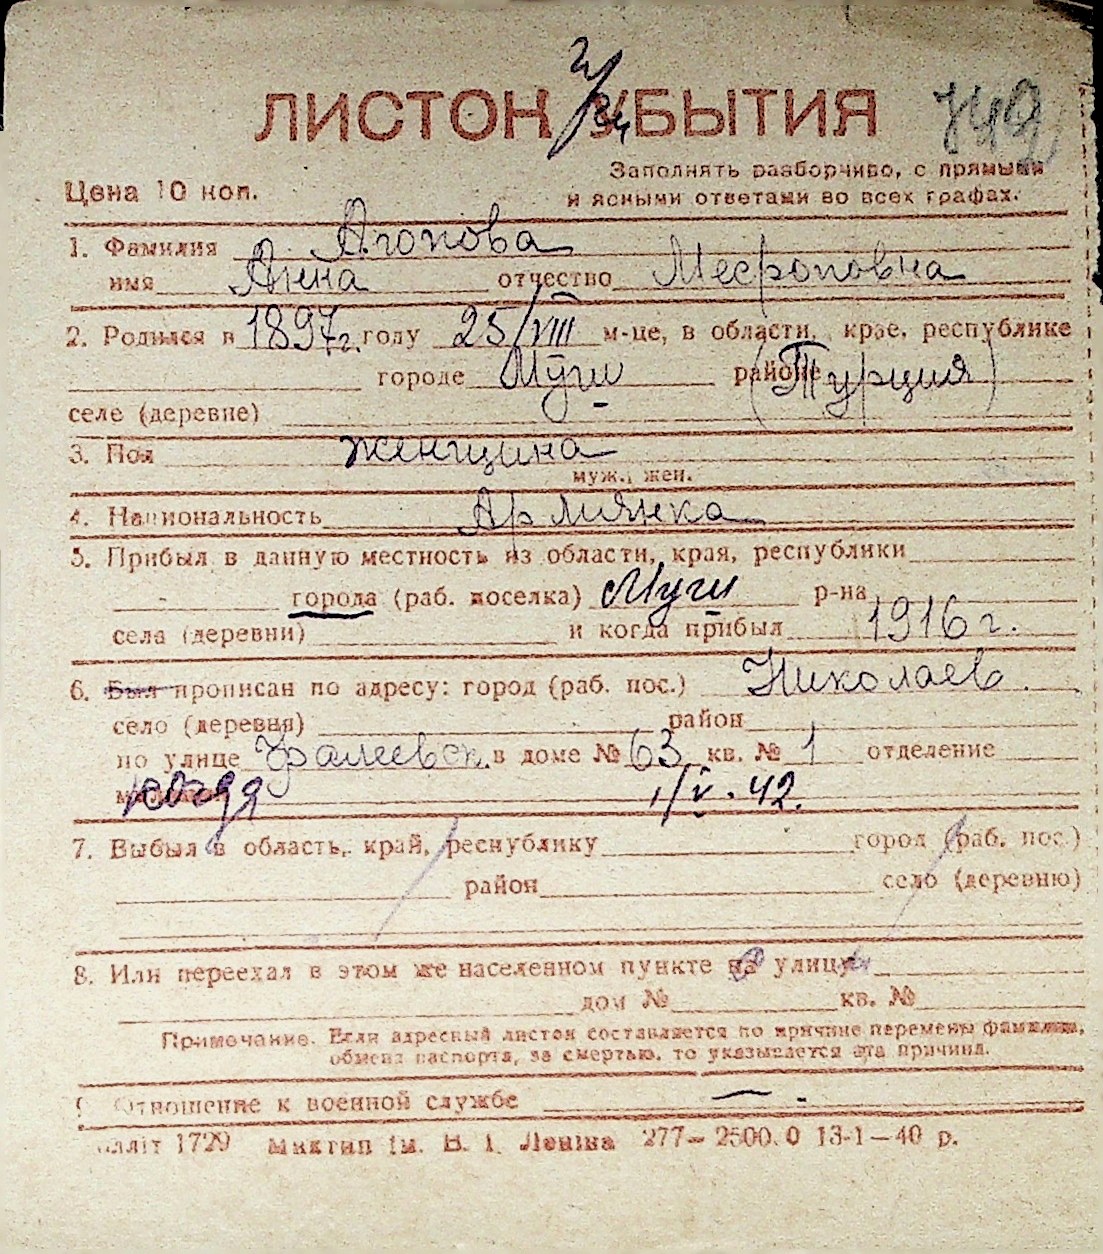 ЛИСТОК УБЫТИЯ 742
Заполнять разборчиво, с прямыми
Цена 10 коп. и ясными ответами во всех графах.
1. Фамилия Агопова
имя Анна отчество Месроповна
2. Родился в 1897г. году 25/VIII м-це, в области, крае, республике
городе Муш районе (Турция)
селе (деревне)
3. Пол женщина
муж., жен.
4. Национальность Армянка
5. Прибыл в данную местность из области, края, республики
города (раб. поселка) Муш р-на
села (деревни) и когда прибыл 1916 г.
6. Был прописан по адресу: город (раб. пос.) Николаев.
село (деревня) район
по улице Фалеевск. в доме № 63 кв. № 1 отделение
когда 1/V. 42.
7. Выбыл в область, край, республику город (раб. пос.)
район село (деревню)
8. Или переехал в этом же населенном пункте на улицу
дом № кв. №
Примечание. Если адресный листок составляется по причине перемены фамилии,
обмена паспорта, за смертью, то указывается эта причина.
9. Отношение к военной службе —
1729 Миктип ім. В. І. Леніна 277—2500.0 13-1—40 р.